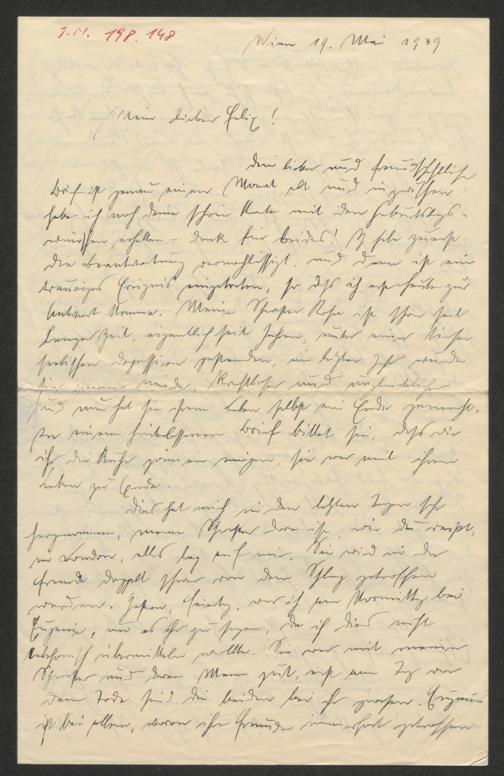 J.N. 198.148
Wien 19. Mai 1939
Mein lieber Felix!
Dein lieber und freundschaftlicher
Brief ist genau einen Monat alt und inzwischen
habe ich noch deine schöne Karte mit den Geburtstags-
wünschen erhalten – dank für beides! Ich habe zuerst
die Beantwortung vernachlässigt und dann ist ein
trauriges Ereignis eingetreten, so daß ich erst heute zur
Antwort komme. Meine Schwester Rosa ist schon seit
langer Zeit, eigentlich seit Jahren, unter einer
seelischen Depression gestanden, im letzten Jahr wurde
sie immer müder, und
und nun hat sie ihrem Leben selbst ein Ende gemacht.
In einem hinterlassenen Brief bittet sie, daß wir
ihr die Ruhe gönnen mögen, sie war mit ihrem
Leben zu Ende.
Dies hat mich in den letzten Tagen sehr
hergenommen, meine Schwester Dora ist, wie du weißt,
in London, alles lag auf mir. Sie wird in der
Fremde doppelt schwer von dem Schlag getroffen
werden. Gestern, Feiertag, war ich am Vormittag bei
Eugenie, um es ihr zu sagen, da ich dies nicht
telephonisch übermitteln wollte. Sie war mit meiner
Schwester und deren Mann gut, erst am Tag vor
dem Tode sind die beiden bei ihr gewesen. Eugenie
ist bei allem, wovon ihre Freunde innerhalb getroffen